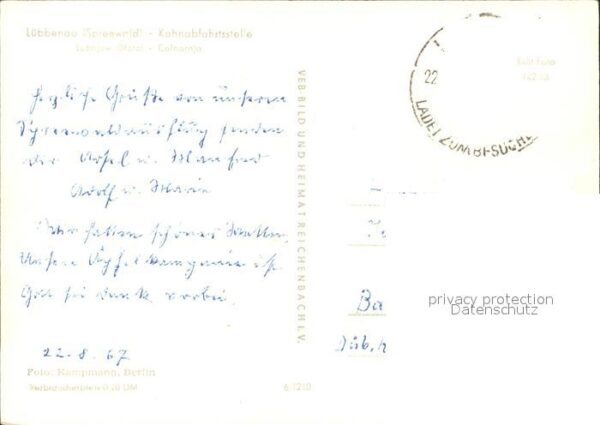 Lübbenau (Spreewald) - Kahnabfahrtsstelle
Lubnjow (Błota) -
Herzliche Grüße von unserem
Spreewaldausflug senden
Dir u. Manfred
Adolf u. Maria
Wir hatten schönes Wetter.
Unsere Apfelkampanie ist
Gott sei Dank vorbei.
22.8.67
Foto: Kampmann, Berlin
Verbraucherpreis 0,20 DM
VEB BILD UND HEIMAT REICHENBACH I. V.
6 1210
Echt Foto
22
LADET ZUM BESUCH
Ba
privacy protection
Datenschutz